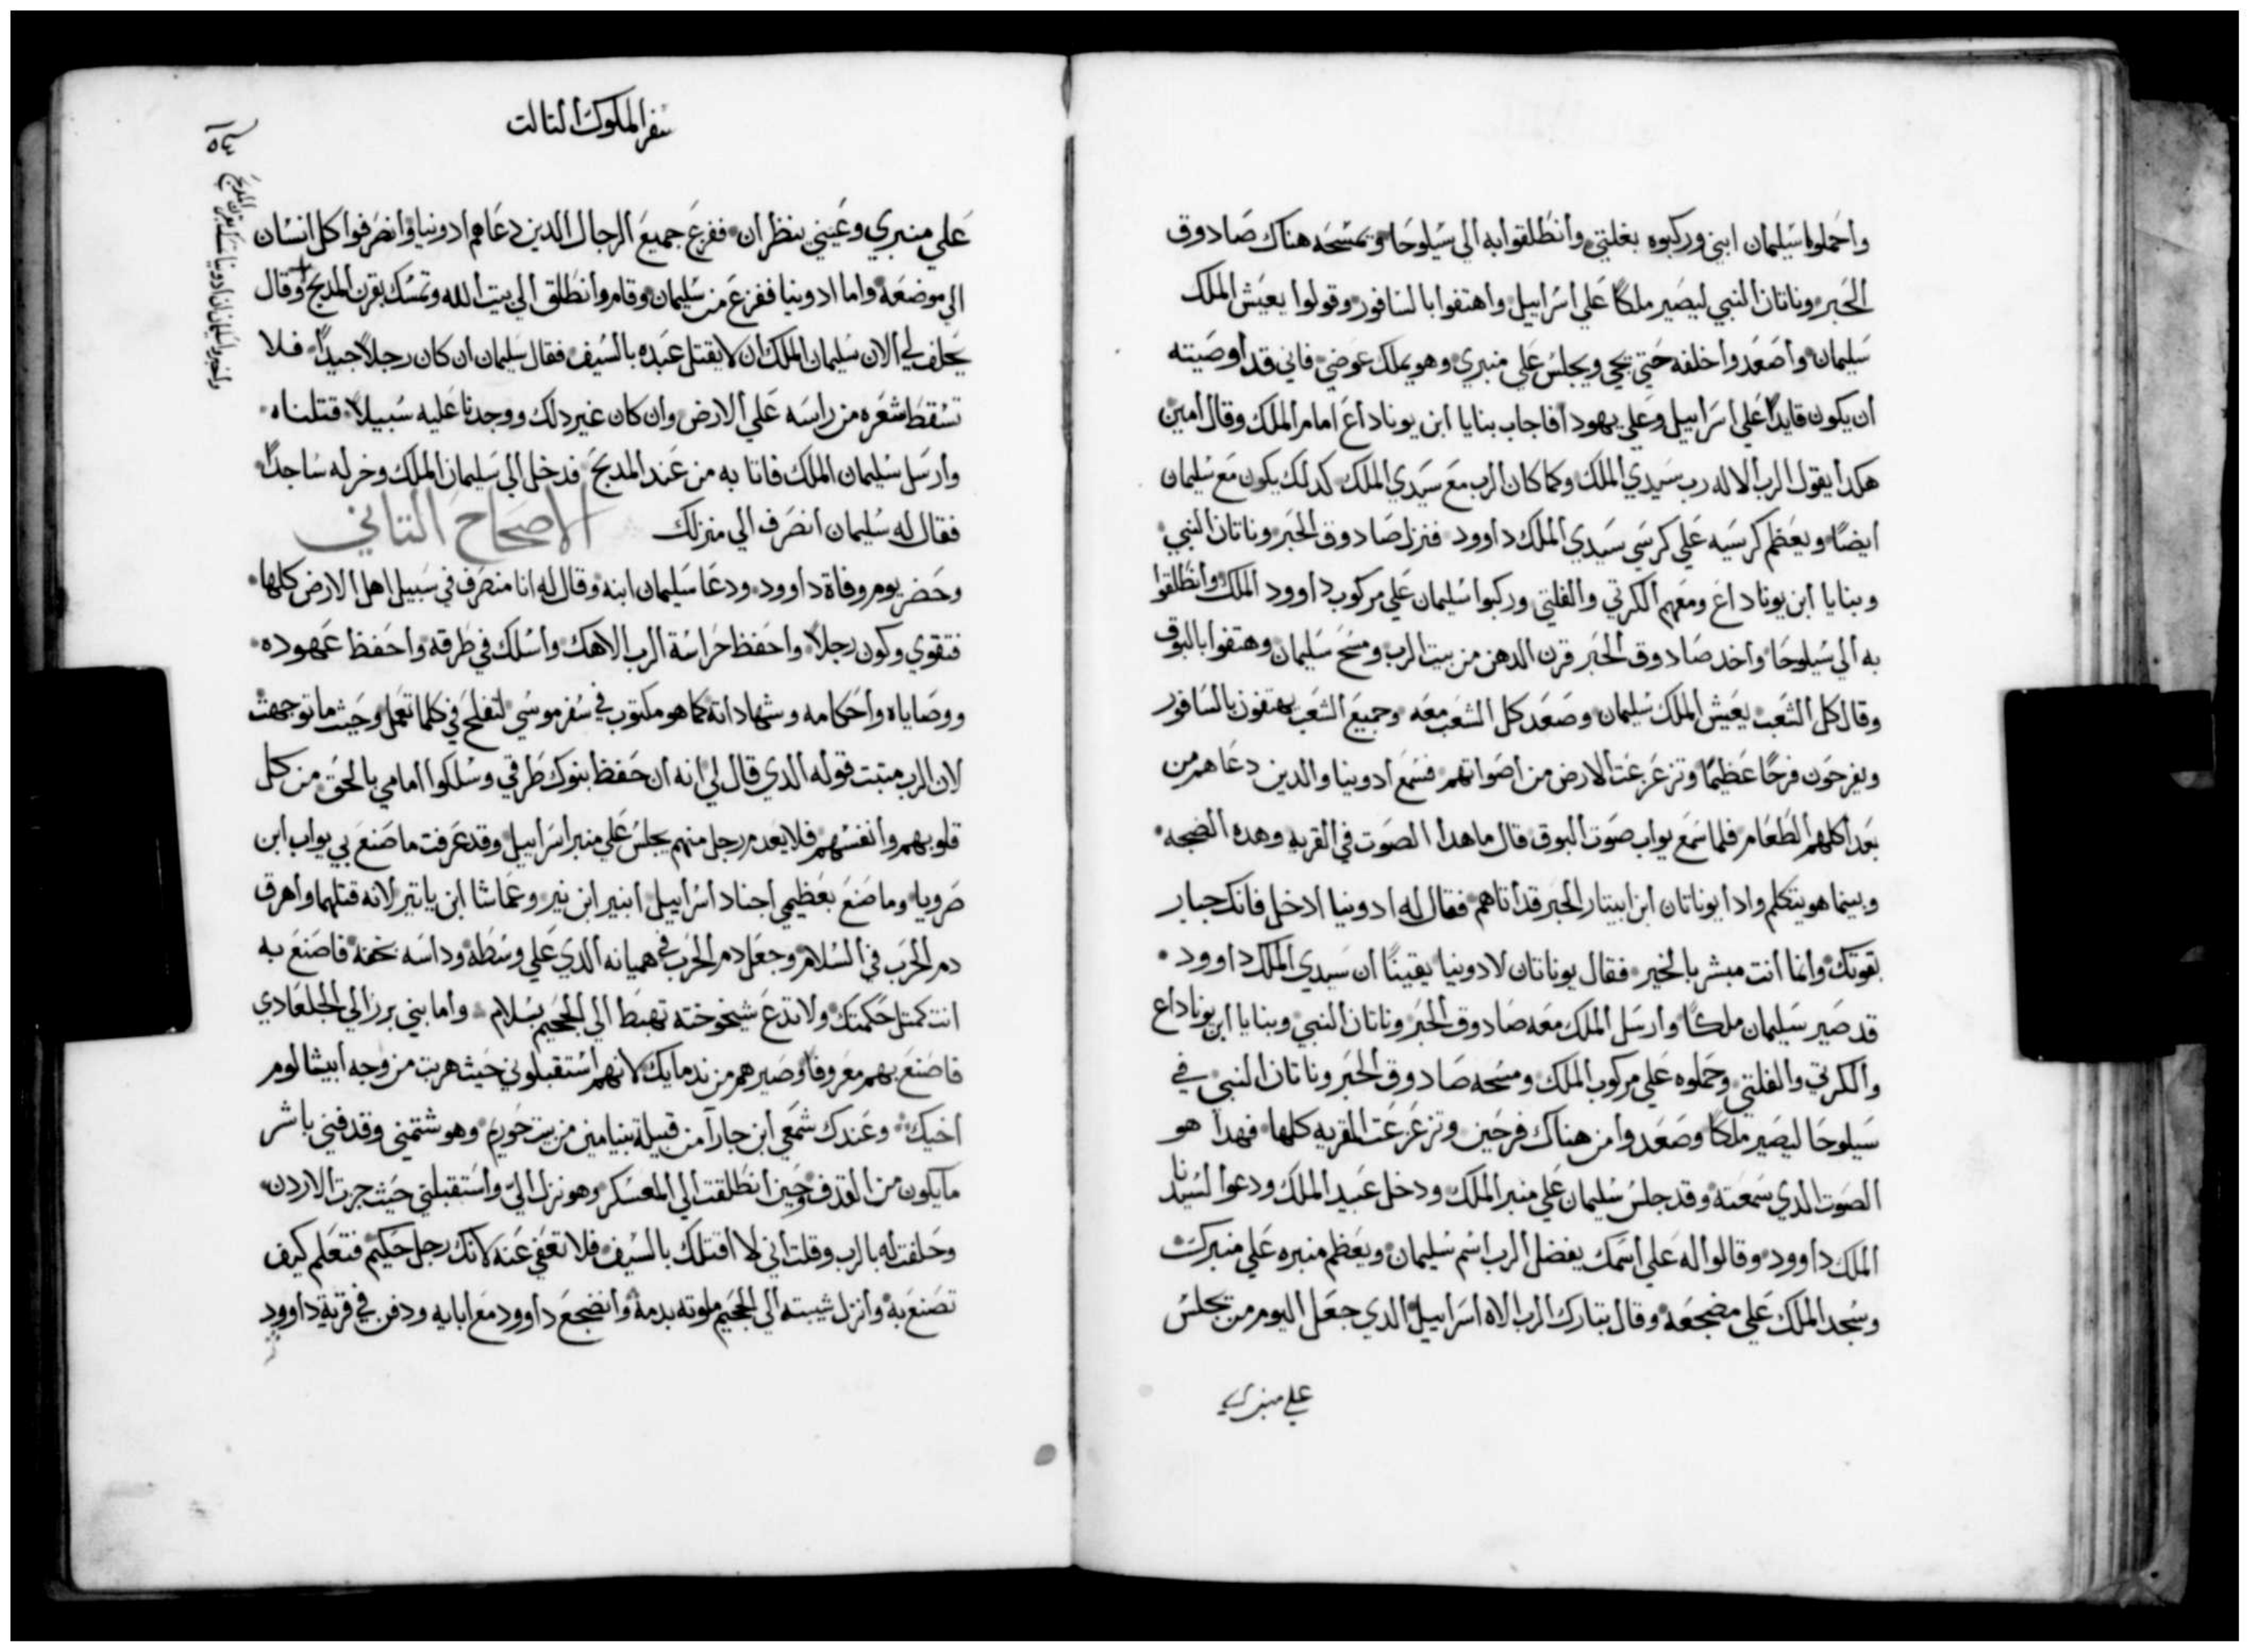 واحملوا سليمان ابني وركبوه بغلتي وانطلقوا به الي سيلوحا ويمسحه هناك صادوق
الحبر وناتان النبي ليصير ملكًا علي اسراييل واهتفوا بالسافور وقولوا يعيش الملك
سليمان واصعدوا خلفه حتي يجي ويجلس علي منبري وهو يملك عوضي فاني قد اوصيته
ان يكون قايدًا علي اسراييل وعلي يهودا فاجاب بنايا ابن يوناداع امام الملك وقال امين
هكدا يقول الرب الاله رب سيدي الملك وكما كان الرب مع سيدي الملك كدلك يكون مع سليمان
ايضًا ويعظم كرسيه علي كرسي سيدي الملك داوود فنزل صادوق الحبر وناتان النبي
وبنايا ابن يوناداع ومعهم الكرتي والفلتي وركبوا سليمان علي مركوب داوود الملك وانطلقوا
به الي سيلوحا واخد صادوق الحبر قرن الدهن من بيت الرب ومسح سليمان وهتفوا بالبوق
وقال كل الشعب يعيش الملك سليمان وصعد كل الشعب معه وجميع الشعب يهتفون بالسافور
ويفرحون فرحًا عظيمًا وتزعزعت الارض من اصواتهم فسمع ادونيا والدين دعاهم من
بعد اكلهم الطعام فلما سمع يواب صوت البوق قال ما هدا الصوت في القريه وهده الضجه
وبينما هو يتكلم وادا يوناتان ابن ابيتار الحبر قد اتاهم فقال له ادونيا ادخل فانك جبار
بقوتك وانما انت مبشر بالخير فقال يوناتان لادونيا يقينًا ان سيدي الملك داوود
قد صير سليمان ملكًا وارسل الملك معه صادوق الحبر وناتان النبي وبنايا ابن يوناداع
والكرتي والفلتي وحملوه علي مركوب الملك ومسحه صادوق الحبر وناتان النبي في
سيلوحا ليصير ملكًا وصعدوا من هناك فرحين وتزعزعت القريه كلها فهدا هو
الصوت الدي سمعته وقد جلس سليمان علي منبر الملك ودخل عبيد الملك ودعوا لسيدنا
الملك داوود وقالوا له علي اسمك يفضل الرب اسم سليمان ويعظم منبره علي منبرك
وسجد الملك علي مضجعه وقال تبارك الرب الاه اسراييل الدي جعل اليوم من يجلس
علي منبري
سفر الملوك التالت
علي منبري وعيني ينظران ففزع جميع الرجال الدين دعاهم ادونيا وانصرفوا كل انسان
الي موضعه واما ادونيا ففزع من سليمان وقام وانطلق الي بيت الله وتمسك بقرن المدبح وقال
يحلف لي الان سليمان الملك ان لا يقتل عبده بالسيف فقال سليمان ان كان رجلاً جيدًا فلا
تسقط شعره من راسه علي الارض وان كان غير دلك ووجدنا عليه سبيلاً قتلناه
وارسل سليمان الملك فاتا به من عند المدبح فدخل الي سليمان الملك وخر له ساجدًا
فقال له سليمان انصرف الي منزلك الاصحاح التاني
وحضر يوم وفاة داوود ودعا سليمان ابنه وقال له انا منصرف في سبيل اهل الارض كلها
فتقوي وكون رجلاً واحفظ حراسة الرب الاهك واسلك في طرقه واحفظ عهوده
ووصاياه واحكامه وشهاداته كما هو مكتوب في سفر موسي لتفلح في كلما تعمل وحيث ما توجهت
لان الرب متبت قوله الدي قال لي انه ان حفظ بنوك طرقي وسلكوا امامي بالحق من كل
قلوبهم وانفسهم فلا يعدم رجل منهم يجلس علي منبر اسراييل وقد عرفت ما صنع بي يواب ابن
صرويا وما صنع بعظيمي اجناد اسراييل ابنير ابن نير وعماشا ابن ياتير لانه قتلهما واهرق
دم الحرب في السلام وجعل دم الحرب في هميانه الدي علي وسطه وداسه بخفه فاصنع به
انت كمتل حكمتك ولا تدع شيخوخته تهبط الي الجحيم بسلام واما بني برزالي الجلعادي
فاصنع بهم معروفًا وصيرهم من ندمايك لانهم استقبلوني حيث هربت من وجه ابيشالوم
اخيك وعندك شمعي ابن جارا من قبيلة بنيامين من بيت حوريم وهو شتمني وقدفني باشر
ما يكون من القدف وحين انطلقت الي المعسكر وهو نزل الي واستقبلني حيث جرت الاردن
وحلفت له بالرب وقلت اني لا اقتلك بالسيف فلا تعفي عنه لانك رجل حكيم فتعلم كيف
تصنع به وانزل شيبته الي الجحيم ملوته بدمه وانضجع داوود مع ابايه ودفن في قرية داوود